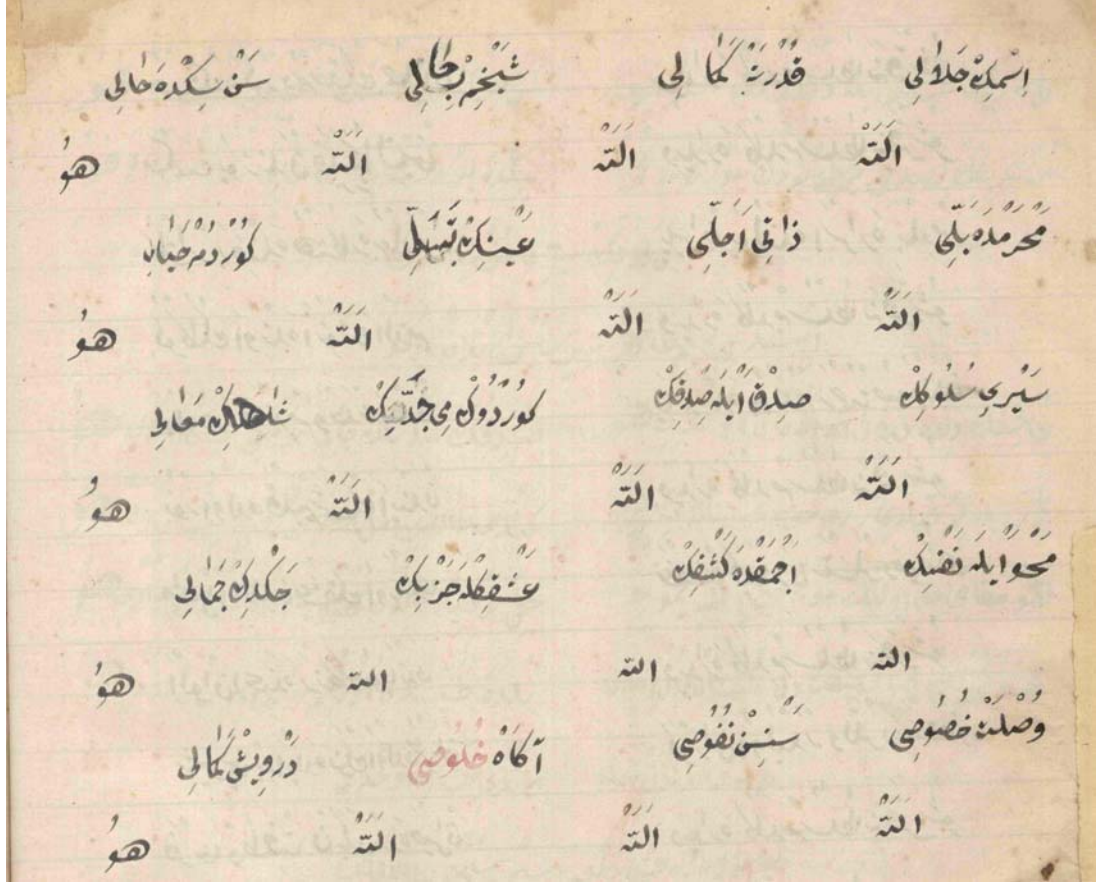 اِسْمِڭ جَلَالِی قُدْرَتْ كَمَالِی شَيْخِمْ رِجَالِی سَنْ سِكْدَه حَالِی
اَللّٰه اَللّٰه اَللّٰه هُو
مَحْرَمْدَه بَلّٰی ذَاتِی اَجَلّٖی عَيْنِڭ تَجَلّٖی كُورْدُمْ خَيَالِ
اَللّٰه اَللّٰه اَللّٰه هُو
سَيْرِی سُلُوكِڭ صِدْقْ اَيْلَه صِدْقِڭ كُورْدُوڭ مِی جَدِّڭ شَاهِڭ مَعَالِی
اَللّٰه اَللّٰه اَللّٰه هُو
مَحْو اَيْلَه نَفْسِڭ كَشْفِڭ عَشْقِڭلَه جَذْبِڭ جَمَالِی
الله الله الله هُو
وُصْلَتْ خُصُوصِی سَنْسِنْ نُفُوصِی آكَاهْ خُلُوصِی دَرْوِيشْ كَمَالِی
اَللّٰه اَللّٰه اَللّٰه هُو